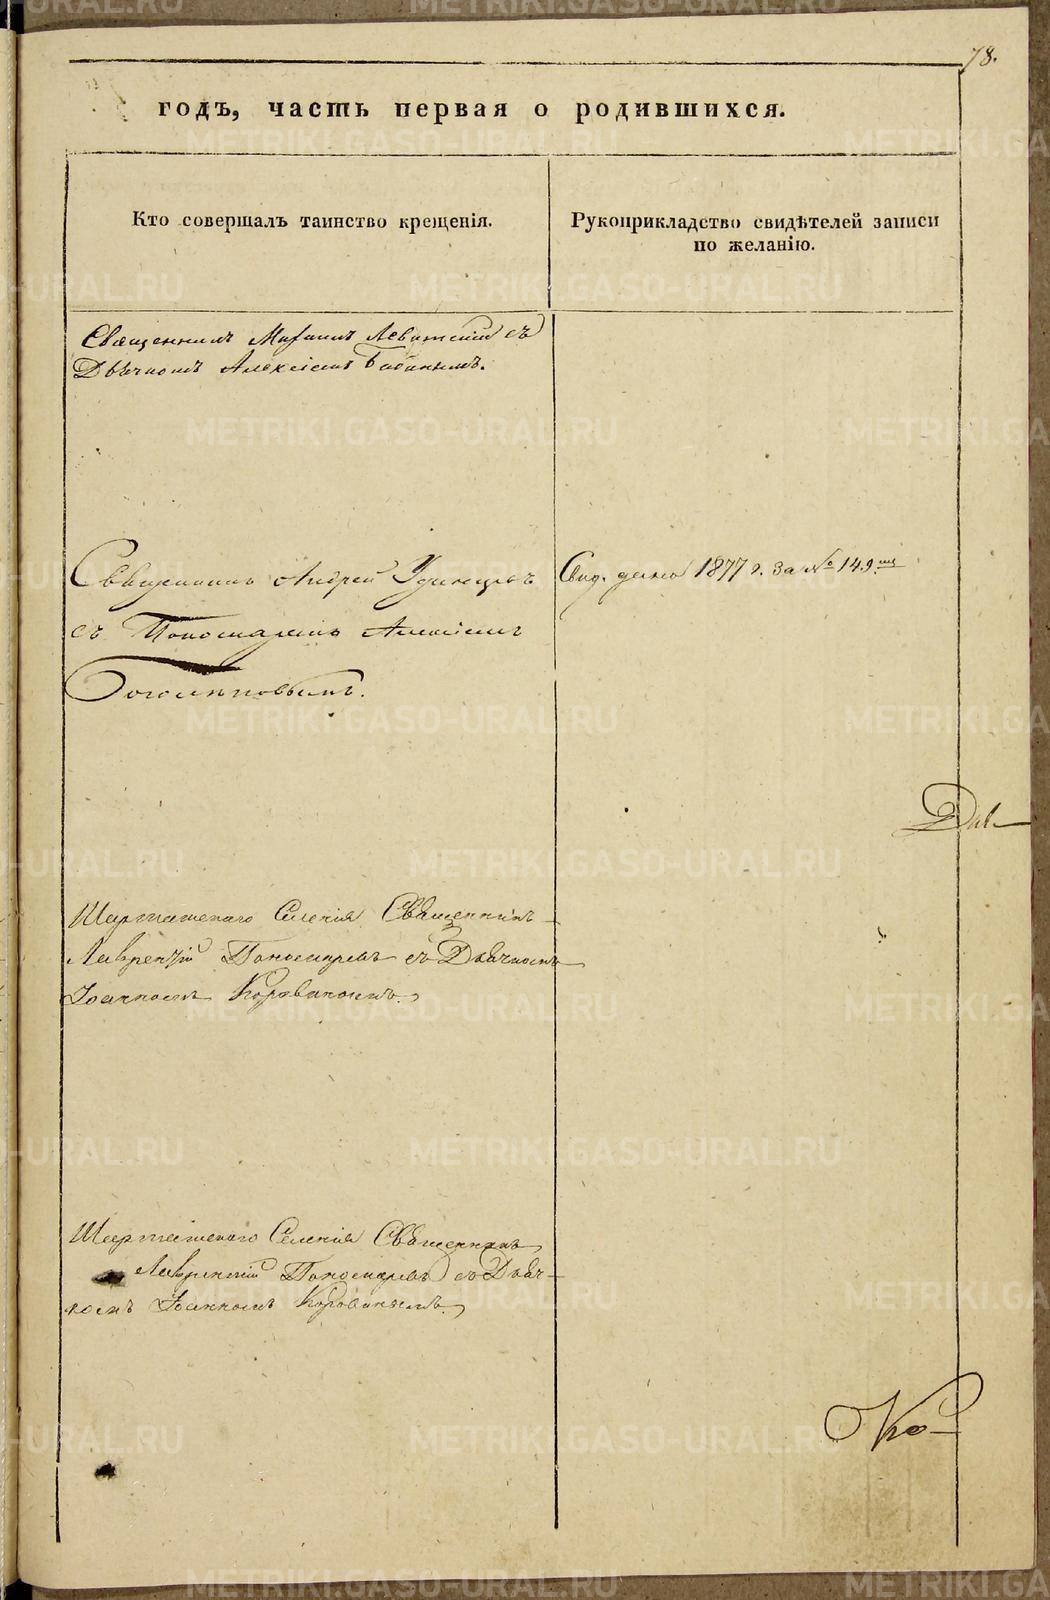 78.
годъ, часть первая о родившихся.
Кто совершалъ таинство крещенія.
Рукоприкладство свидѣтелей записи
по желанію.
Священникъ Михаилъ Левитскій съ
Дьячкомъ Алексіемъ Бабинымъ.
Священникъ Андрей Удинцевъ
съ Пономаремъ Алексіемъ
Свид. дано 1877 г. за № 149.мъ
Шарташскаго Селенія Священникъ
Лаврентій Пономаревъ съ Дьячкомъ
Іоанномъ Коровинымъ.
Шарташскаго Селенія Священникъ
Лаврентій Пономаревъ съ Дьяч-
комъ Іоанномъ Коровинымъ.
METRIKI.GASO-URAL.RU